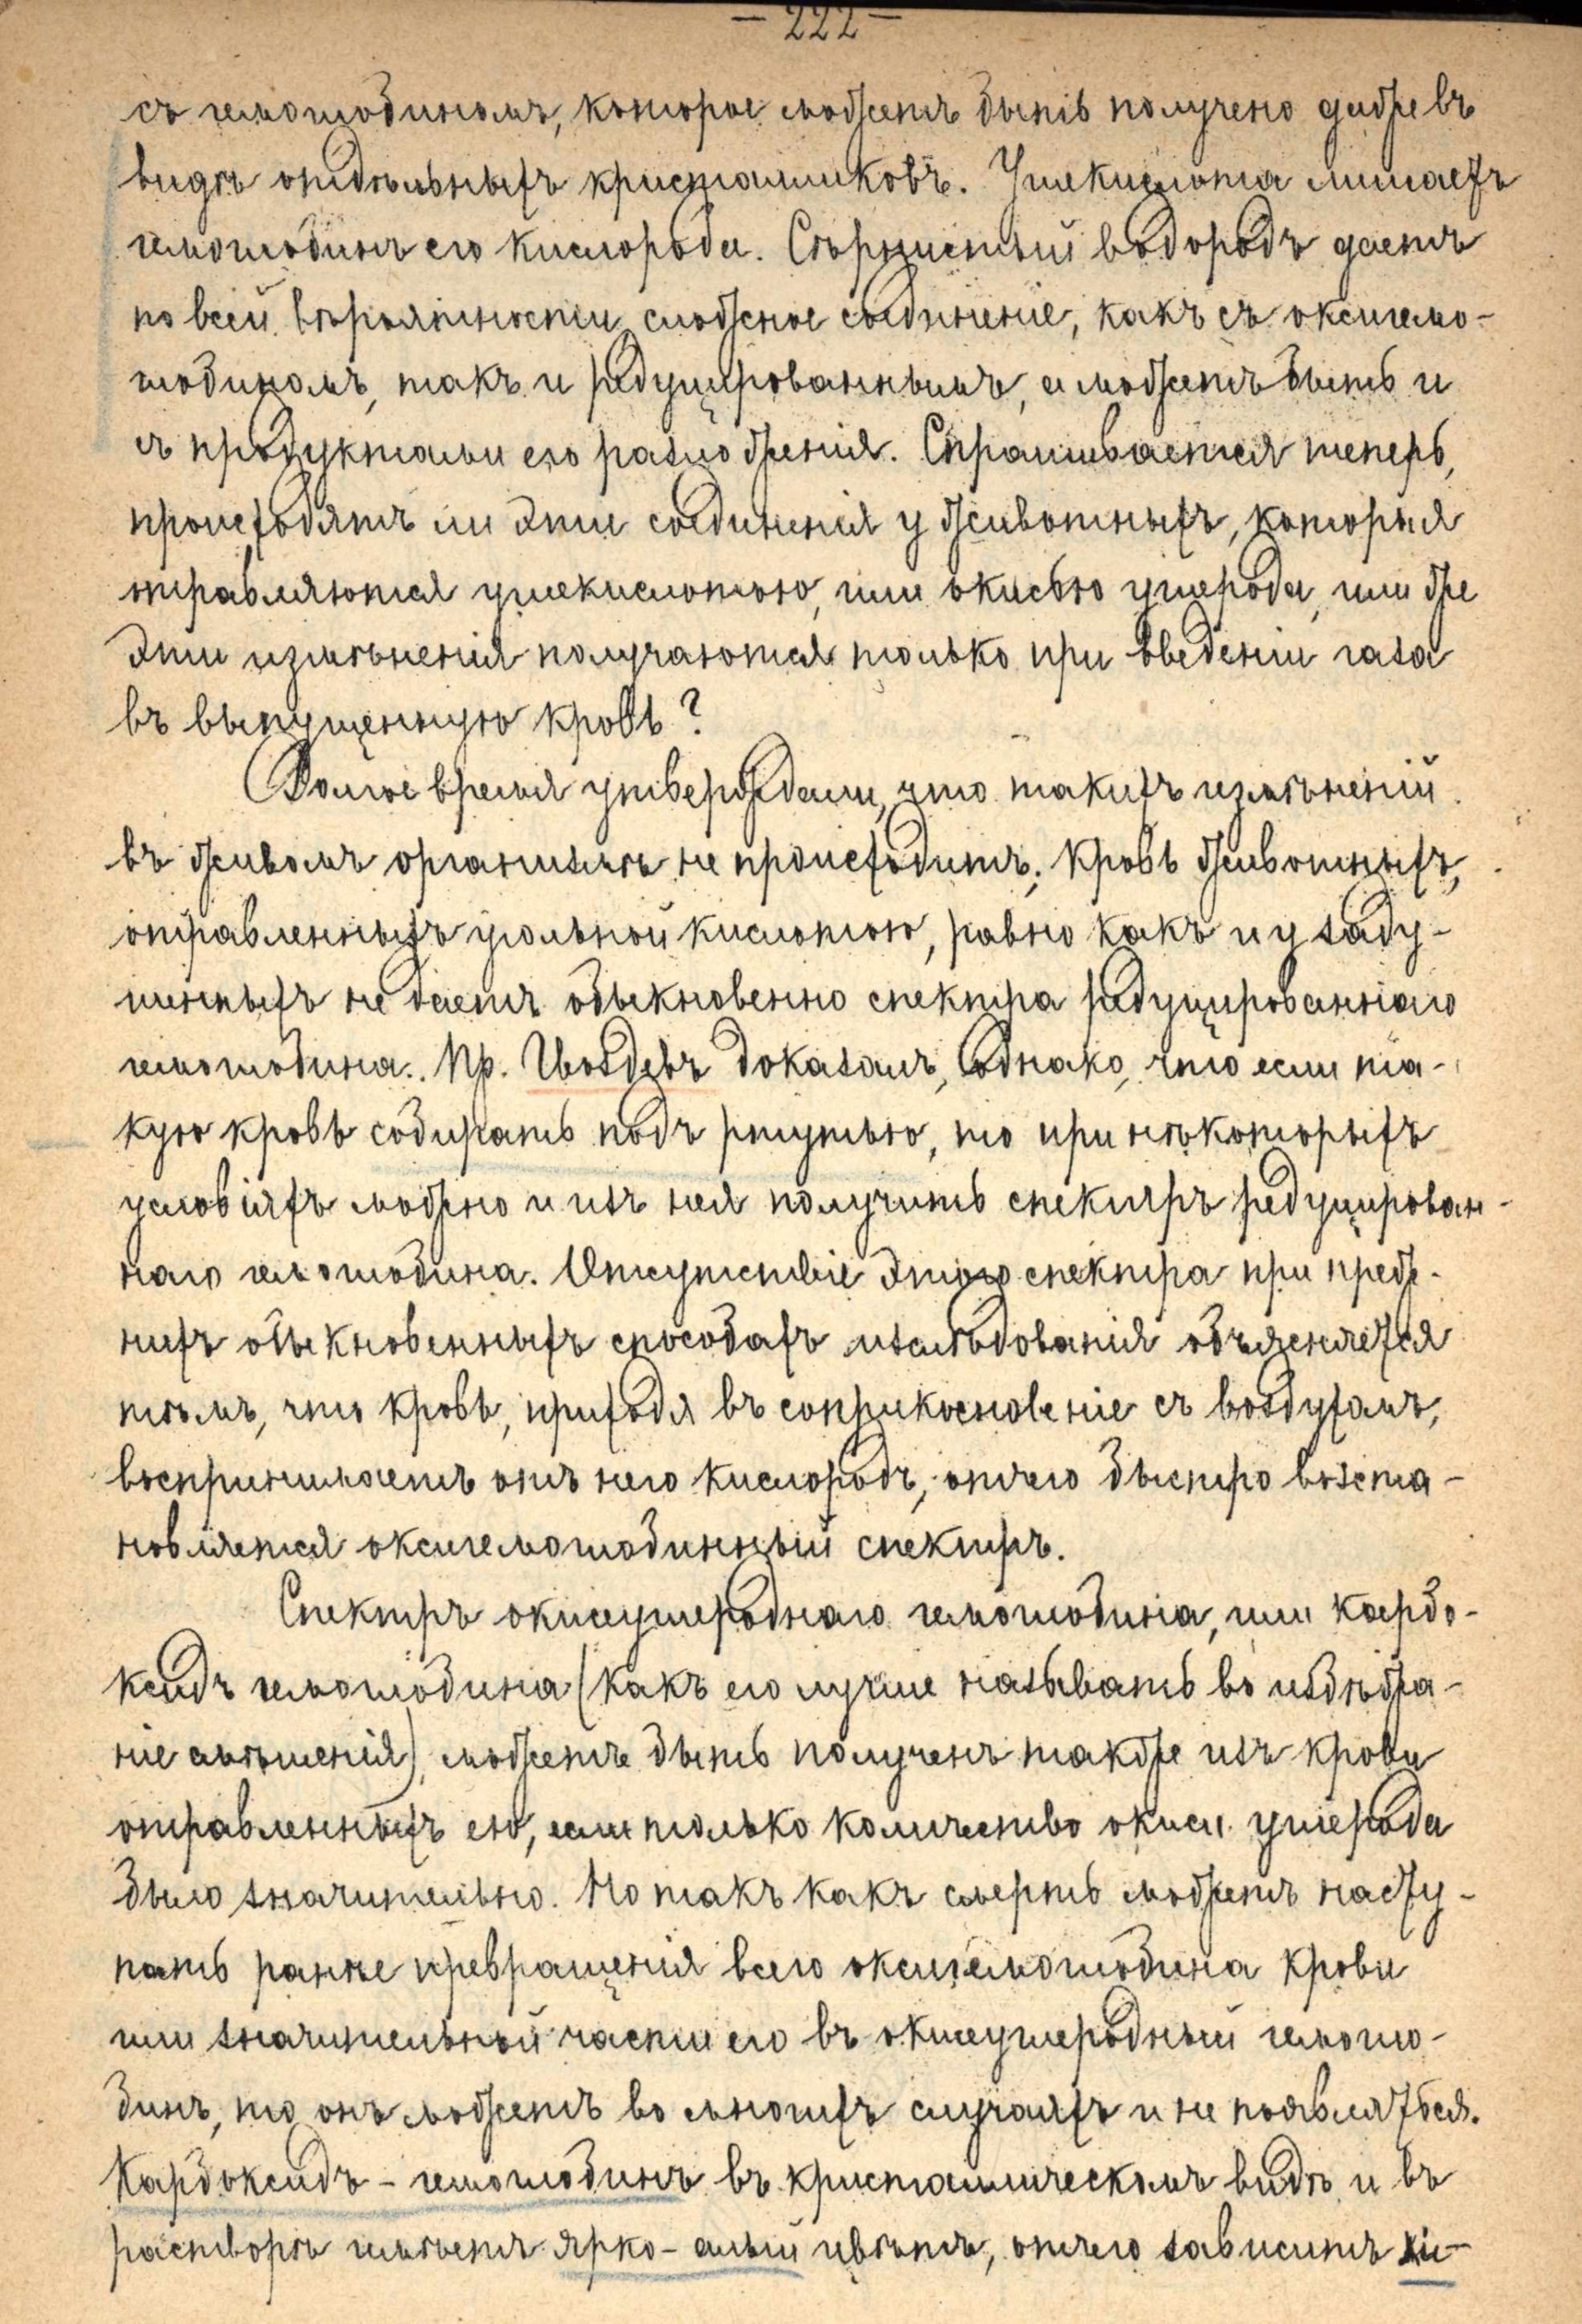 — 222 —
съ гемоглобиномъ, которое можетъ быть получено даже въ
видѣ отдѣльныхъ кристалликовъ. Углекислота лишаетъ
гемоглобинъ его кислорода. Сѣрнистый водородъ даетъ
по всей вѣроятности сложное соединеніе, какъ съ оксигемо-
глобиномъ, такъ и редуцированнымъ, а можетъ быть и
съ продуктами его разложенія. Спрашивается теперь,
происходятъ ли эти соединенія у животныхъ, которыя
отравляются углекислотою, или окисью углерода, или же
эти измѣненія получаются только при введеніи газа
въ выпущенную кровь?
Долгое время утверждали, что такихъ измѣненій
въ живомъ организмѣ не происходитъ; кровь животныхъ,
отравленныхъ угольной кислотою, равно какъ и у заду-
шенныхъ не даетъ обыкновенно спектра редуцированнаго
гемоглобина. Пр. Гвоздевъ доказалъ, однако, что если та-
кую кровь собирать подъ ртутью, то при нѣкоторыхъ
условіяхъ можно и изъ нея получить спектръ редуцирован-
наго гемоглобина. Отсутствіе этого спектра при преж-
нихъ обыкновенныхъ способахъ изслѣдованія объясняется
тѣмъ, что кровь, приходя въ соприкосновеніе съ воздухомъ,
воспринимаетъ отъ него кислородъ, отчего быстро возста-
новляется оксигемоглобинный спектръ.
Спектръ окисеуглероднаго гемоглобина, или карбо-
ксидъ гемоглобина (какъ его лучше называть во избѣжа-
ніе смѣшенія), можетъ быть полученъ также изъ крови
отравленныхъ ею, если только количество окиси углерода
было значительно. Но такъ какъ смерть можетъ насту-
пать ранѣе превращенія всего оксигемоглобина крови
или значительной части его въ окисеуглеродный гемогло-
бинъ, то онъ можетъ во многихъ случаяхъ и не появляться.
Карбоксидъ-гемоглобинъ въ кристаллическомъ видѣ и въ
растворѣ имѣетъ ярко-алый цвѣтъ, отчего зависитъ хи-